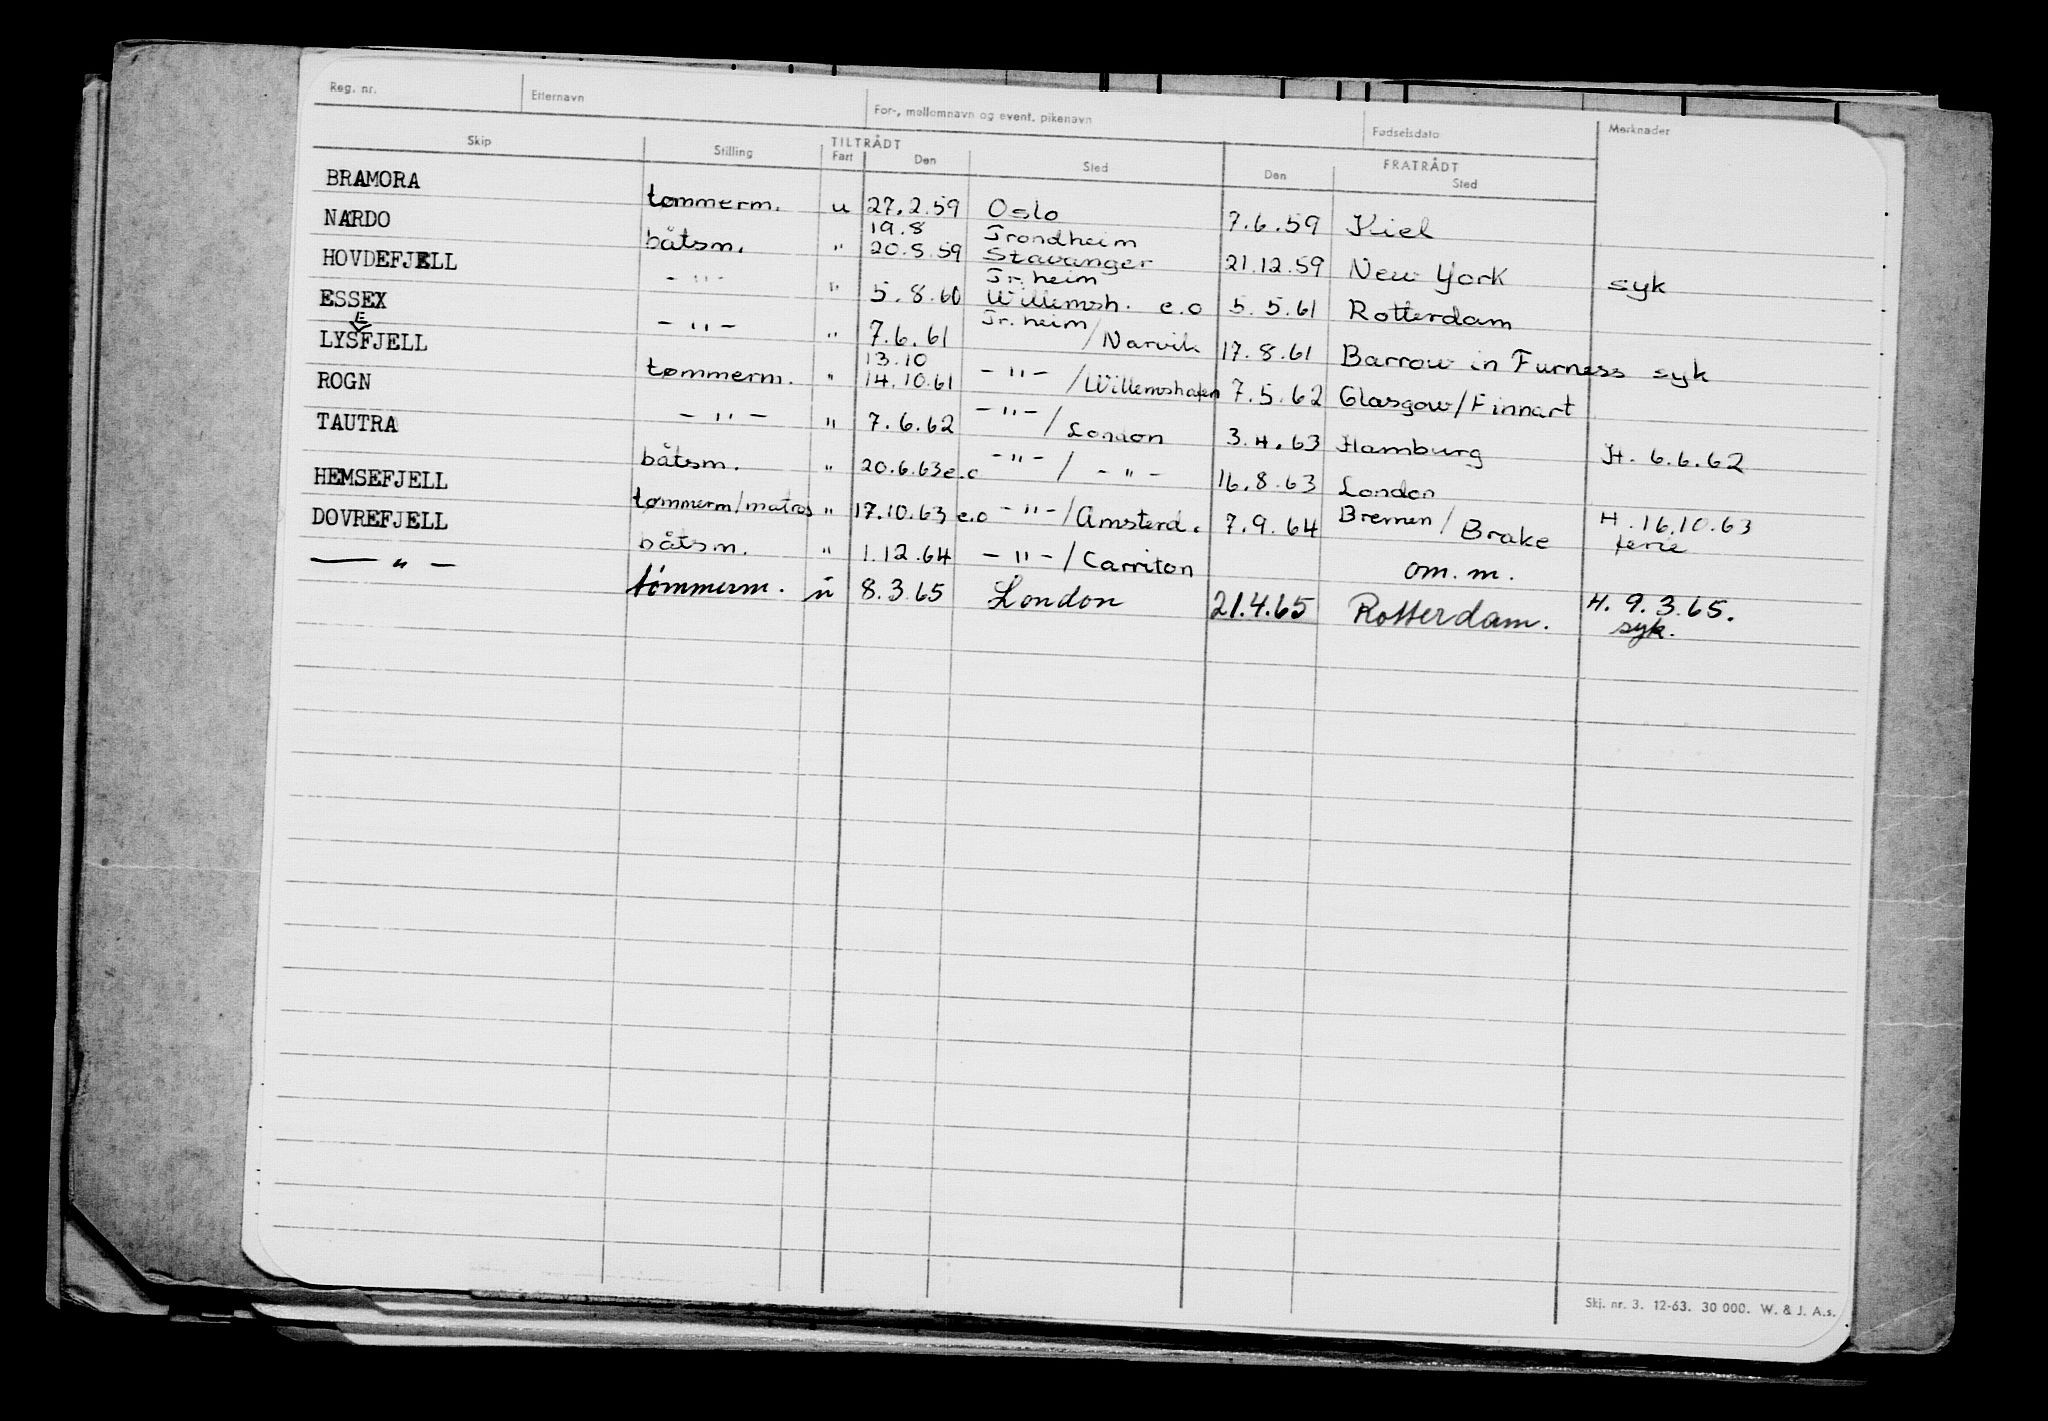 Reg. nr. Etternavn For-, mellomnavn og event. pikenavn Fødselsdato Merknader
Skip Stilling TILTRÅDT Fart Den Sted FRATRÅDT Den Sted
BRAMORA tømmerm. u 27.2.59 Oslo 7.6.59 Kiel
NARDO båtsm. " 19.8 20.8.59 Trondheim Stavanger 21.12.59 New York syk
HOVDEFJELL - " - " 5.8.60 Tr.heim Willemsh. e.o 5.5.61 Rotterdam
ESSEX - " - " 7.6.61 Tr.heim / Narvik 17.8.61 Barrow in Furness syk
LYSEFJELL tømmerm. " 13.10 14.10.61 - " - / Willemshafen 7.5.62 Glasgow/Finnart
ROGN - " - " 7.6.62 - " - / London 3.4.63 Hamburg H. 6.6.62
TAUTRA båtsm. " 20.6.63 e.o - " - / - " - 16.8.63 London
HEMSEFJELL tømmerm/matros " 17.10.63 e.o - " - / Amsterd. 7.9.64 Bremen / Brake H. 16.10.63 ferie
DOVREFJELL båtsm. " 1.12.64 - " - / Carriton om. m.
— " — tømmerm. u 8.3.65 London 21.4.65 Rotterdam. H. 9.3.65. syk.
Skj. nr. 3. 12-63. 30 000. W. & J. A.s.